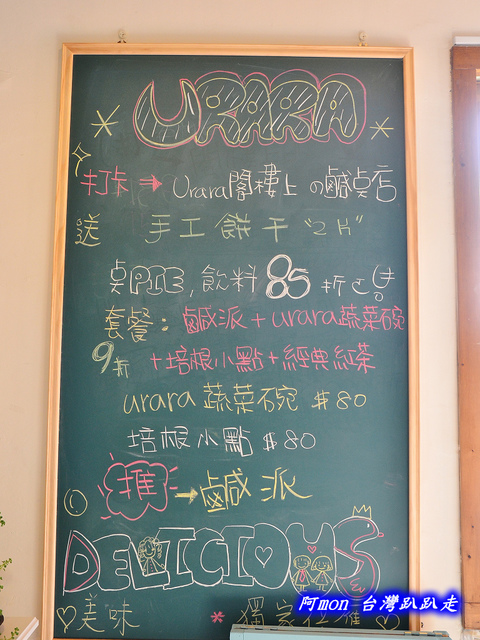 URARA
打卡 → Urara閣樓上の鹹点店
送 手工餅干"2片"
桌PIE,飲料85折
套餐: 鹹派+urara蔬菜碗
9折 +培根小點+經典紅茶
urara 蔬菜碗 $80
培根小點 $80
推→鹹派
DELICIOUS
♡美味 *獨家
阿mon-台灣趴趴走